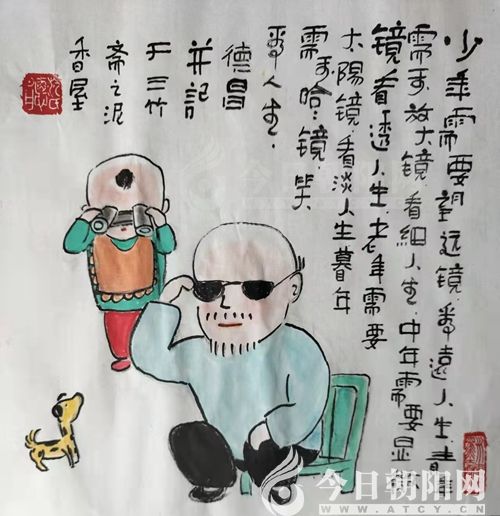 少年需要望远镜.看遠人生.青年
需要放大镜.看细人生.中年需要显微
镜看透人生.老年需要
太陽镜.看淡人生暮年
需要哈:镜.笑
看人生.
德昌
并記
于三竹
斋之泥
香屋
今日朝阳网
WWW.ATCY.CN